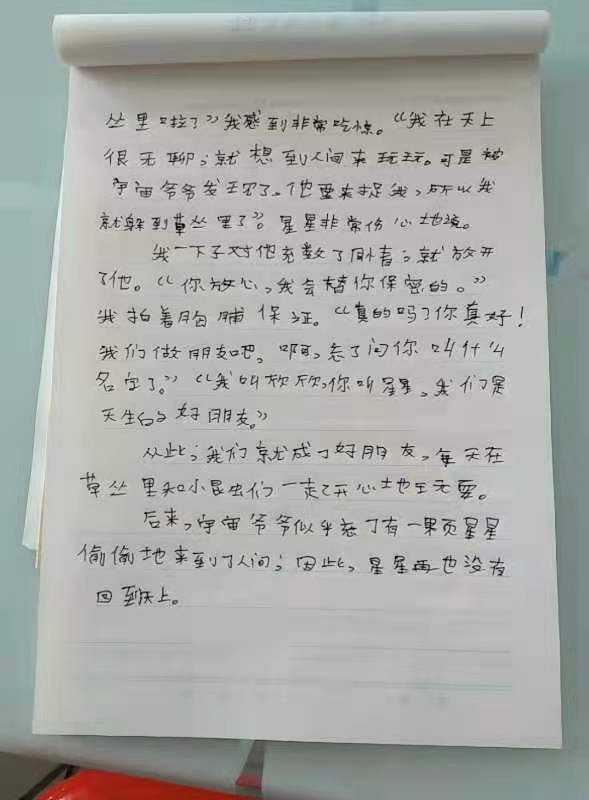 丛里啦了”我感到非常吃惊。“我在天上
很无聊，就想到人间来玩玩。可是被
宇宙爷爷发现了。他要来捉我，所以我
就躲到草丛里了”。星星非常伤心地说。
我一下子对他充数了同情，就放开
了他。“你放心，我会替你保密的。”
我拍着胸脯保证。“真的吗？你真好！
我们做朋友吧，啊，忘了问你叫什么
名字了。”“我叫欣欣，你叫星星，我们是
天生的好朋友。”
从此，我们就成了好朋友，每天在
草丛里和小昆虫们一起开心地玩耍。
后来，宇宙爷爷似乎忘了有一颗星星
偷偷地来到了人间，因此，星星再也没有
回到天上。